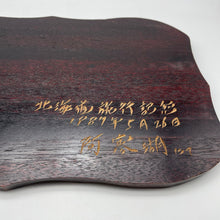 北海道旅行記念
1987年5月26日
阿寒湖